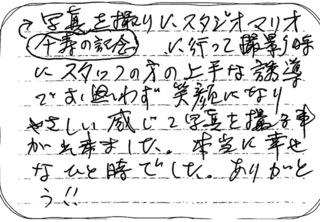 写真を撮りにスタジオマリオ
(傘寿の記念) に行って撮影の時
にスタッフの方の上手な誘導
で 思わず 笑顔になり
やさしい感じで写真を撮る事
が出来ました。本当に幸せ
なひと時でした。ありがと
う!!